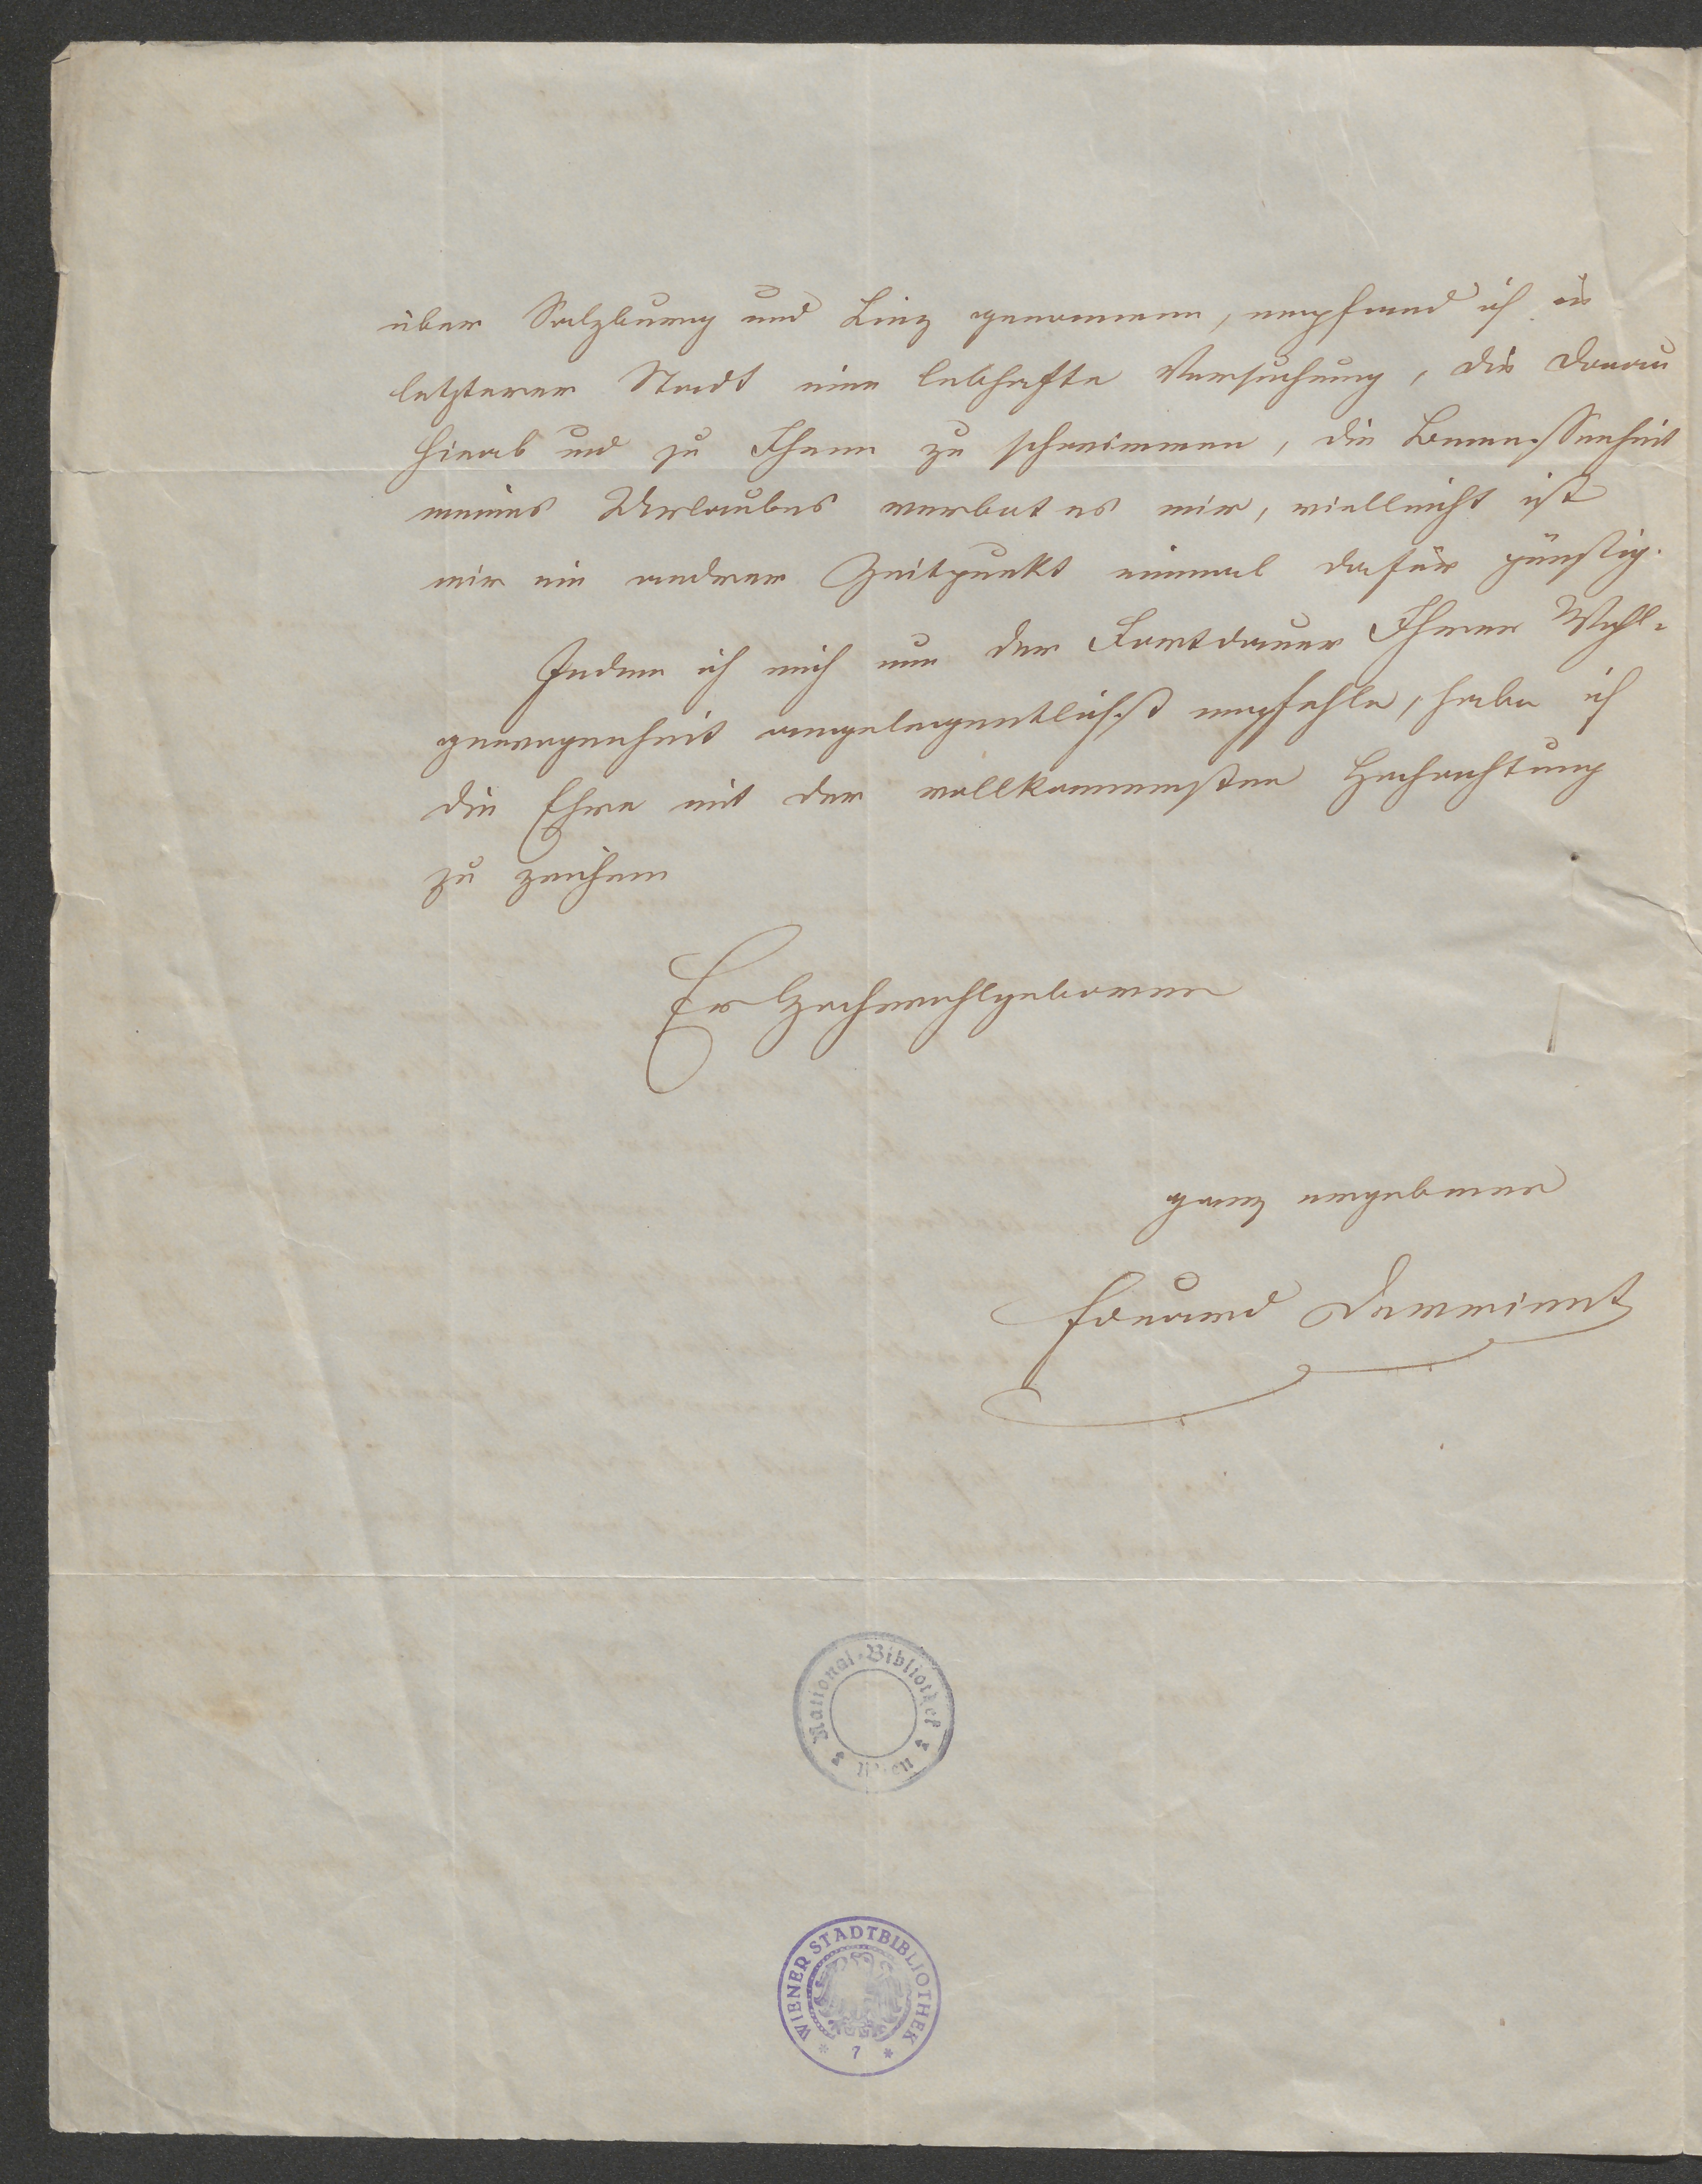 über Salzburg und Linz genommen, empfand ich in
letzterer Stadt eine lebhafte Versuchung, die Donau
hinab und zu Ihnen zu schwimmen, die Bemessenheit
meines Urlaubes verbot es mir, vielleicht ist
mir ein andrer Zeitpunkt einmal dafür günstig.
Indem ich mich nun der Fortdauer Ihrer Wohl-
gewogenheit angelegentlichst empfehle, habe ich
die Ehre mit der vollkommensten Hochachtung
zu zeichnen
Ew Hochwohlgeboren
ganz ergebener
Eduard Devrient
National-Bibliothek
Wien
WIENER STADTBIBLIOTHEK
* 7 *